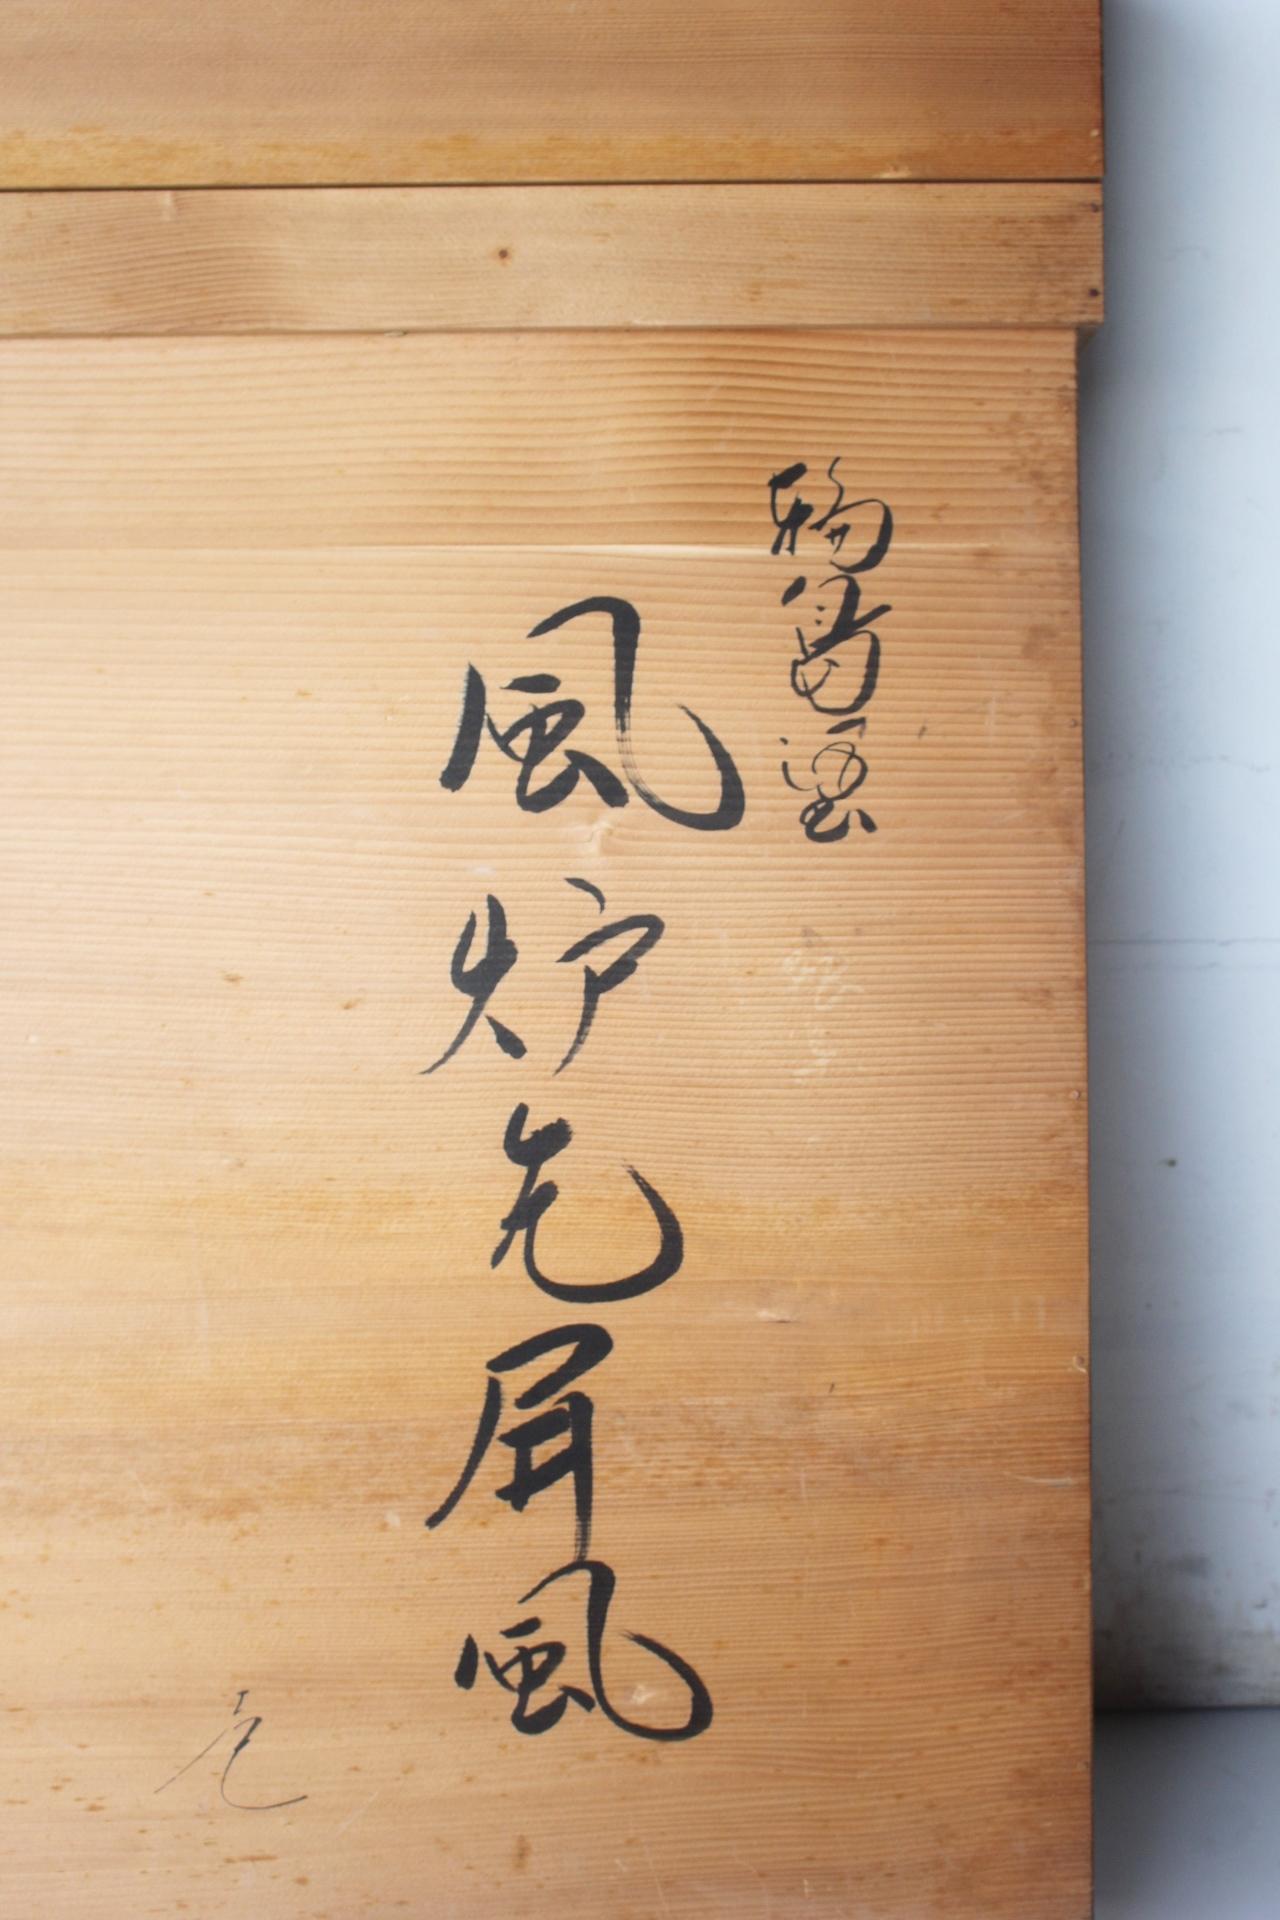 輪島塗
風炉先屏風